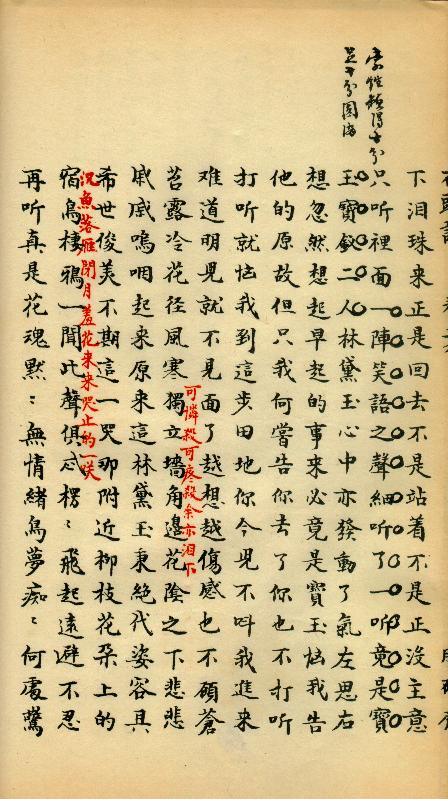 字維類得
足千分圓滿
下泪珠来正是回去不是站着不是正没主意
只听裡面一陣笑語之聲細听了一听竟是寶
玉寶釵二人林黛玉心中亦發動了氣左思右
想忽然想起早起的事来必竟是寶玉恼我告
他的原故但只我何嘗告你去了你也不打听
打听就恼我到這步田地你今兒不呌我進来
难道明兒就不見面了越想越傷感也不碩蒼
可憐殺可疼殺余亦泪下
苔露冷花径風寒獨立墻角邊花陰之下悲悲
戚戚嗚咽起来原来這林黛玉秉絕代姿容具
希世俊美不期這一哭那附近柳枝花朶上的
沉魚落雁閉月羞花来来哭止的一咲
宿鳥棲鴉一聞此聲俱忒楞〻飛起遠避不忍
再听真是花魂黙〻無情緒鳥夢痴〻何處驚